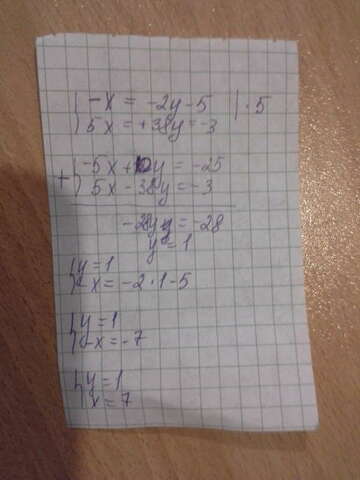 { -x = -2y-5 | · 5
5x = +38y = -3
+ { -5x + 10y = -25
5x - 38y = -3
-28y = -28
y = 1
{ y = 1
-x = -2·1-5
{ y = 1
-x = -7
{ y = 1
x = 7